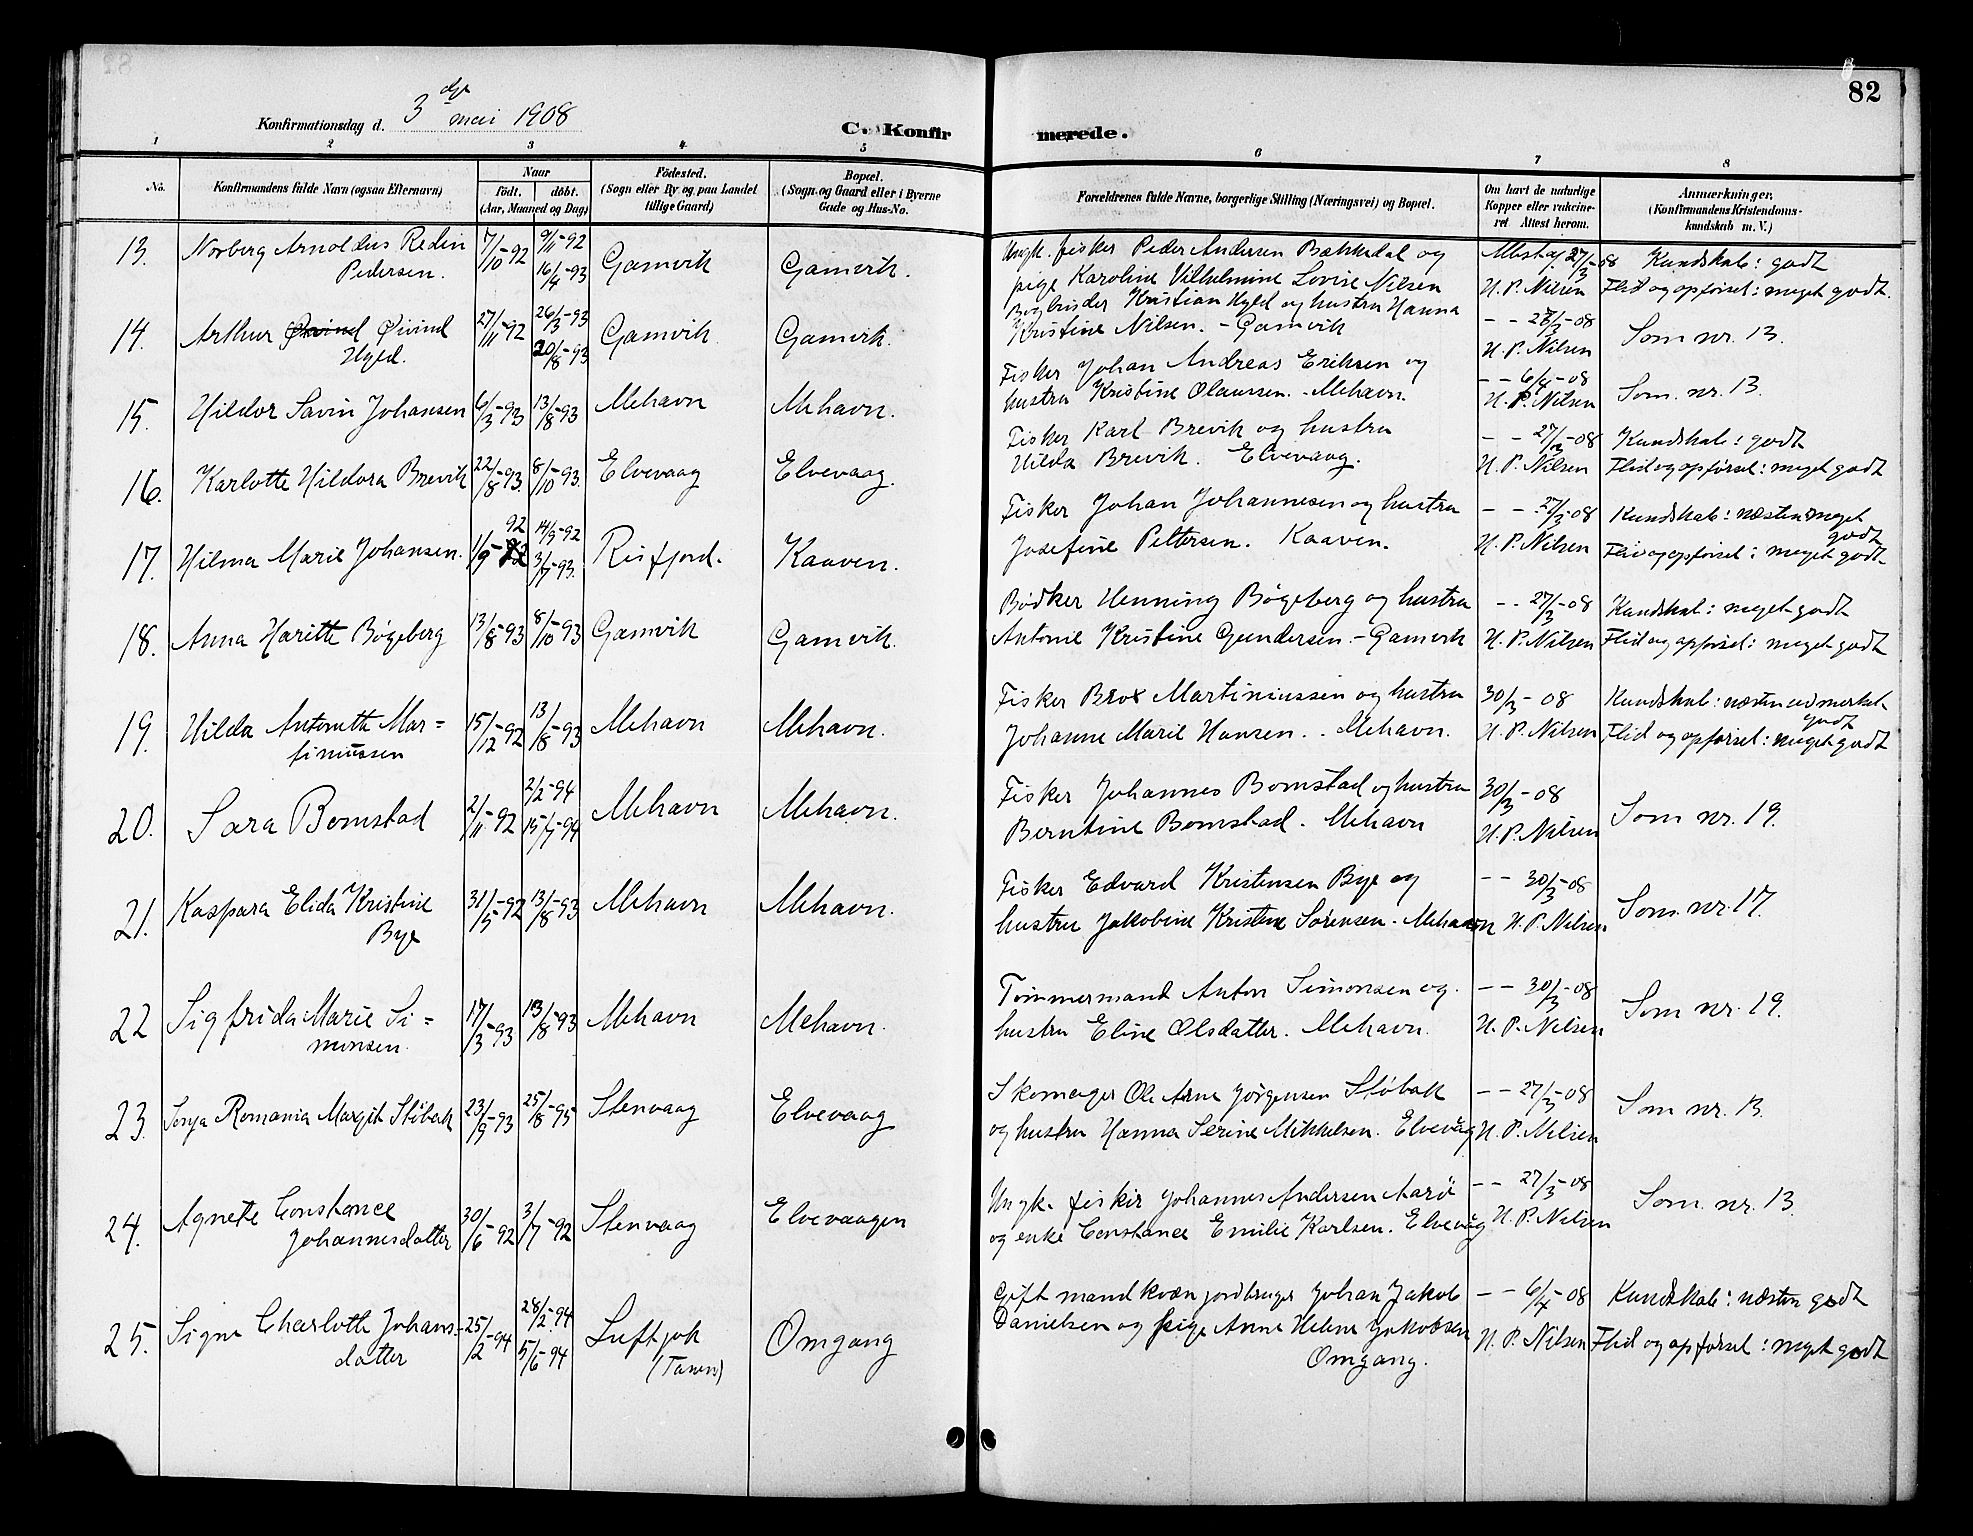 82
Konfirmationsdag d. 3 dje mai 1908
C. Konfirmerede.
1 2 3 4 5 6 7 8
No.
Konfirmandens fulde Navn (ogsaa Efternavn)
Naar
født. døbt.
(Aar, Maaned og Dag)
Fødested.
(Sogn eller By og paa Landet
tillige Gaard)
Bopæl.
(Sogn og Gaard eller i Byerne
Gade og Hus-No.
Forældrenes fulde Navne, borgerlige Stilling (Næringsvei) og Bopæl.
Om havt de naturlige
Kopper eller vakcine-
ret Attest herom.
Anmærkninger,
(Konfirmandens Kristendoms-
kundskab m. V.)
13. Norberg Arnoldus Redin Pedersen. 7/10-92 9/11-92 16/4-93 Gamvik Gamvik.
Ungk. fisker Peder Andersen Bækkedal og
pige Karoline Vilhelmine Lovise Nilsen
27/3-08 H. P. Nilsen
Kundskab: godt
Flid og opførsel: meget godt.
14. Arthur Øivind Øivind Hyld. 27/11-92 26/3-93 20/8-93 Gamvik Gamvik.
Bogbinder Kristian Hyld og hustru Hanna
Kristine Nilsen. - Gamvik
- - 28/3-08 H. P. Nilsen
Som nr. 13.
15. Hildor Savin Johansen 6/3-93 13/8-93 Mehavn Mehavn.
Fisker Johan Andreas Eriksen og
hustru Kristine Olaussen. Mehavn.
- - 6/4-08 H. P. Nilsen
Som. nr. 13.
16. Karlotte Hildora Brevik 22/8-93 8/10-93. Elvevaag Elvevaag.
Fisker Karl Brevik og hustru
Hilda Brevik. Elvevaag.
- - 27/3-08 H. P. Nilsen
Kundskab: godt
Flid og opførsel: meget godt
17. Hilma Marie Johansen. 1/9-92 92 14/9-92 3/7-93. Risfjord. Kaaven.
Fisker Johan Johannesen og hustru
Josefine Pettersen. Kaaven.
- - 27/3-08 H. P. Nilsen
Kundskab: næsten meget
godt
Flid og opførsel: meget godt
18. Anna Haritte Bøgeberg 13/8-93 8/10-93 Gamvik Gamvik.
Bødker Henning Bøgeberg og hustru
Antonie Kristine Gundersen. - Gamvik
- - 27/3-08 H. P. Nilsen
Kundskab: meget godt
Flid og opførsel: meget godt
19. Hilda Antonette Mar=
tinussen 15/12-92 13/8-93 Mehavn Mehavn.
Fisker Brox Martiniussen og hustru
Johanne Marie Hansen. . Mehavn.
30/3-08 H. P. Nilsen
Kundskab: næsten udmerket
godt
Flid og opførsel: meget godt
20. Sara Bomstad 2/11-92 2/2-94 15/7-94 Mehavn Mehavn.
Fisker Johannes Bomstad og hustru
Berntine Bomstad. Mehavn
30/3-08 H. P. Nilsen
Som nr. 19.
21. Kaspara Elida Kristine
Bye 31/5-92 13/8-93 Mehavn Mehavn.
Fisker Edvard Kristensen Bye og
hustru Jakobine Kristine Sørensen. Mehavn
- - 30/3-08 H. P. Nilsen
Som. nr. 17.
22 Sigfrida Marie Si=
monsen. 17/3-93 13/8-93 Mehavn Mehavn.
Tømmermand Anton Simonsen og
hustru Eline Olsdatter. Mehavn.
- - 30/3-08 H. P. Nilsen
Som nr. 19.
23. Sonja Romania Margit Støbak 23/9-93 25/8-95 Stenvaag Elvevaag
Skomager Ole Arne Jørgensen Støbak
og hustru Hanna Serine Mikkelsen. Elvevåg
- - 27/3-08 H. P. Nilsen
Som nr. 13.
24. Agnete Constance
Johannesdatter 30/6-92 3/7-92 Stenvaag Elvevaagen
Ungk. fisker Johannes Andersen Aarø
og enke Constance Emilie Karlsen. Elvevåg
- - 27/3-08 H. P. Nilsen
Som. nr. 13.
25. Signe Charlotte Johans-
datter 25/2-94 28/2-94 5/6-94 Luftjok
(Tanen) Omgang
Gift mand kvæn jordbruger Johan Jakob
Danielsen og pige Anne Helene Jakobsen
Omgang.
- - 6/4-08 H. P. Nilsen
Kundskab: næsten godt
Flid og opførsel: meget godt